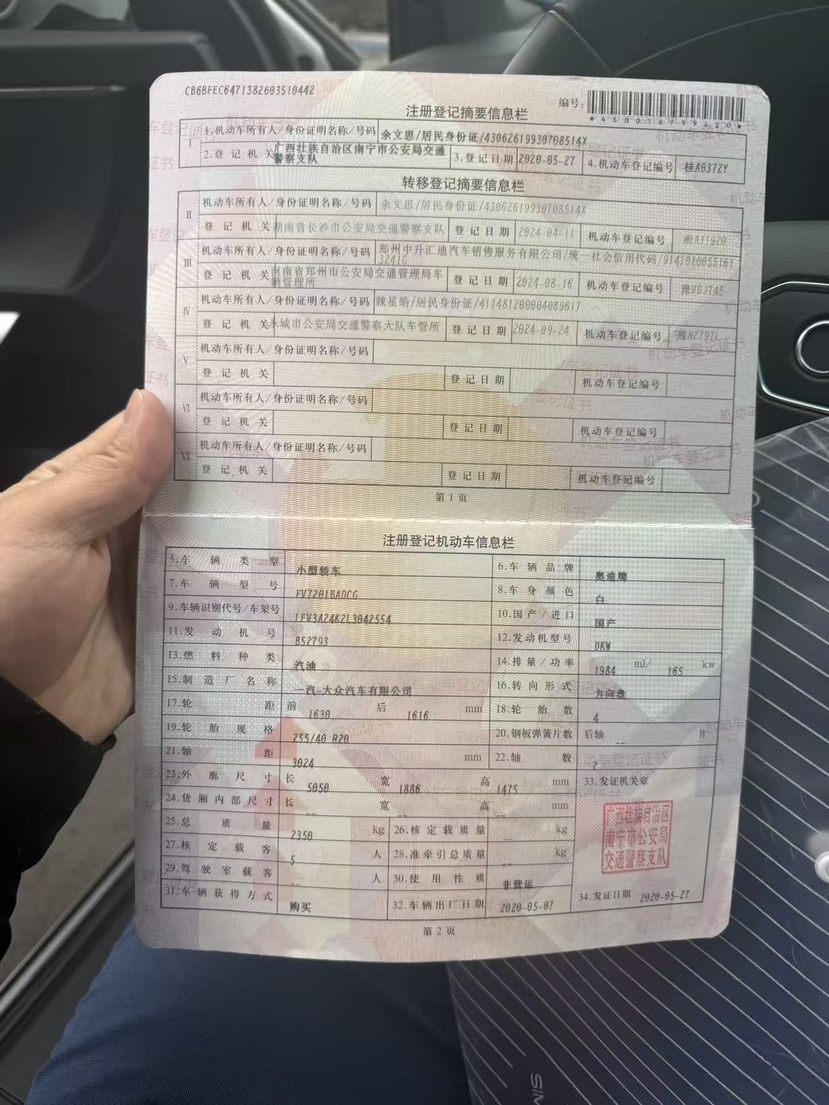 CB6BFEC6471382603510442
编号:
*450018999420*
注册登记摘要信息栏
I 1.机动车所有人/身份证明名称/号码 余文思/居民身份证/43062619930708514X
2.登记机关 广西壮族自治区南宁市公安局交通警察支队 3.登记日期 2020-05-27 4.机动车登记编号 桂A0372Y
转移登记摘要信息栏
II 机动车所有人/身份证明名称/号码 余文思/居民身份证/43062619930708514X
登记机关 湖南省长沙市公安局交通警察支队 登记日期 2024-04-11 机动车登记编号 湘AJ1920
III 机动车所有人/身份证明名称/号码 郑州中升汇迪汽车销售服务有限公司/统一社会信用代码/
登记机关 河南省郑州市公安局交通管理局车辆管理所 登记日期 2024-08-16 机动车登记编号 豫VDJ745
IV 机动车所有人/身份证明名称/号码 星皓/居民身份证/411481200004089617
登记机关 永城市公安局交通警察大队车管所 登记日期 2024-09-24 机动车登记编号
V 机动车所有人/身份证明名称/号码
登记机关 登记日期 机动车登记编号
VI 机动车所有人/身份证明名称/号码
登记机关 登记日期 机动车登记编号
VII 机动车所有人/身份证明名称/号码
登记机关 登记日期 机动车登记编号
第1页
注册登记机动车信息栏
5.车辆类型 小型轿车 6.车辆品牌 奥迪牌
7.车辆型号 FV7201BADCG 8.车身颜色 白
9.车辆识别代号/车架号 LFV3A24K2L3042554 10.国产/进口 国产
11.发动机号 B52793 12.发动机型号 DKW
13.燃料种类 汽油 14.排量/功率 1984 ml/ 165 kw
15.制造厂名称 一汽-大众汽车有限公司 16.转向形式 方向盘
17.轮距 前 1630 后 1616 mm 18.轮胎数 4
19.轮胎规格 255/40 R20 20.钢板弹簧片数 后轴 -- 片
21.轴距 3024 mm 22.轴数 2
23.外廓尺寸 长 5050 宽 1886 高 1475 mm 33.发证机关章
24.货厢内部尺寸 长 -- 宽 -- 高 -- mm
25.总质量 2350 kg 26.核定载质量 -- kg
27.核定载客 5 人 28.准牵引总质量 -- kg
29.驾驶室载客 -- 人 30.使用性质 非营运
31.车辆获得方式 购买 32.车辆出厂日期 2020-05-07 34.发证日期 2020-05-27
广西壮族自治区
南宁市公安局
交通警察支队
第2页